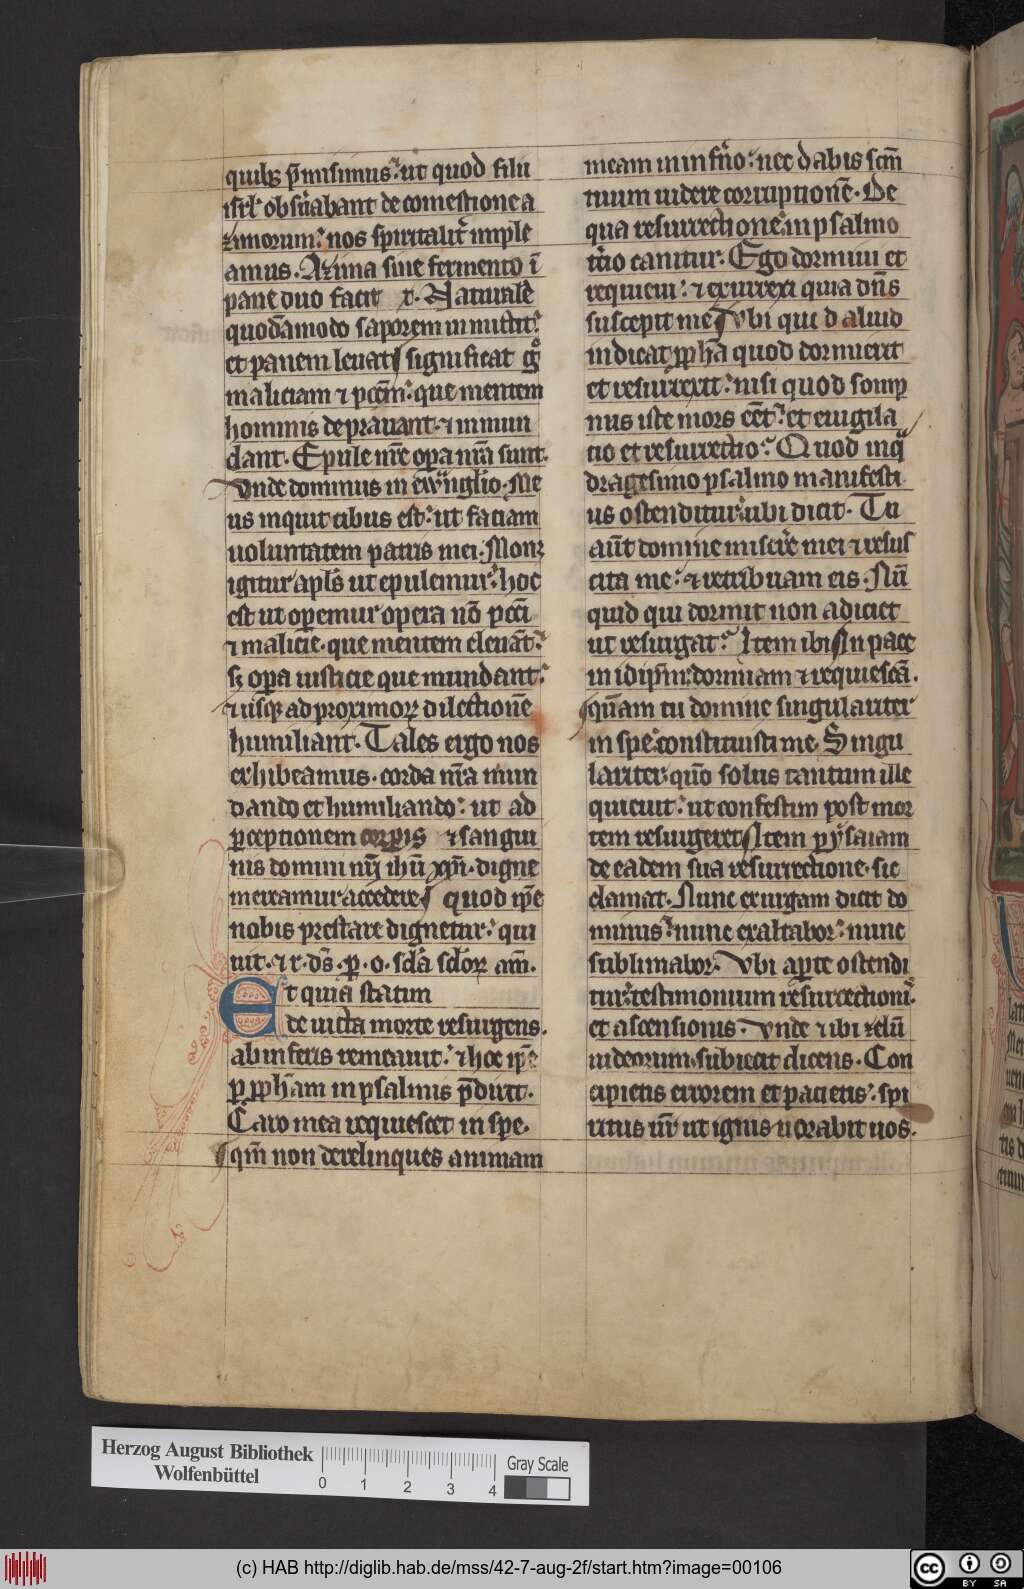 quibꝫ p̄misimus. ut quod filii
isrl' obẜuabant de comestione a
zimorum. nos spiritalit̾ imple
amus. Azima sine fermento ī
pane duo facit .i. Naturalē
quodāmodo saporem inmittit.
et panem leuat significat gͦ
maliciam ⁊ pccm̄. que mentem
hominis deprauant. ⁊ inmun
dant. Epule nr̄e opera nr̄a sunt.
vnde dominus in ewanglio. Me
us inquit cibus est. ut faciam
uoluntatem patris mei. Monꝫ
igitur apls̄ ut epulemur. hoc
est ut operemur opera nō pcc̄i
⁊ malicie. que mentem eleuāt.
sꝫ opera iusticie que mundant.
⁊ usqꝫ ad proximorꝝ dilectionē
humiliant. Tales ergo nos
exhibeamus. corda nr̄a mun
dando et humiliando. ut ad
ꝑceptionem corpis ⁊ sangui
nis domini nr̄i ihū xp̄i. digne
mereamur accedere quod ip̄e
nobis prestare dignetur. qui
uit. ⁊ r. ds̄. ꝑ. o. scl̄a scl̄orꝝ am̄.
Et quia statim
deuicta morte resurgens.
ab inferis remeauit. ⁊ hoc ip̄e
ꝑ ꝓph̄am in psalmis p̄dixit.
Caro mea requiescet in spe.
qm̄ non derelinques animam
meam in infrno. nec dabis scm̄
tuum uidere corruptionē. De
qua resurrectione. in psalmo
trcio canitur. Ego dormiui et
requieui. ⁊ exurrexi quia dn̄s
suscepit me Vbi quid aliud
indicat ꝓph̄a quod dormierit
et resurrexit. nisi quod somp
nus iste mors eēt. et euigila
tio et resurrectio. Quod in q̄
dragesimo psalmo manifesti
us ostenditur. ubi dicit. Tu
aūt domine miserere mei ⁊ resus
cita me. ⁊ retribuam eis. Nū
quid qui dormit non adiciet
ut resurgat. Item ibi In pace
in idipm̄. dormiam ⁊ requiescā.
qm̄am tu domine singulariter
in spe constituisti me. Singu
lariter. quō solus tantum ille
quieuit. ut confestim post mor
tem resurgeret Item ꝑ ysaiam
de eadem sua resurrectione. sic
clamat. Nunc exurgam dicit do
minus. nunc exaltabor. nunc
sublimabor. Vbi aperte ostendi
tur. testimonium resurrectionis.
et ascensionis. Vnde ⁊ ibi zelū
iudeorum. subiecit dicens. Con
cipietis errorem et pacietis. spi
ritus ur̄ ut ignis uorabit uos.
Herzog August Bibliothek
Wolfenbüttel
0 1 2 3 4
Gray Scale
(c) HAB http://diglib.hab.de/mss/42-7-aug-2f/start.htm?image=00106
cc BY SA